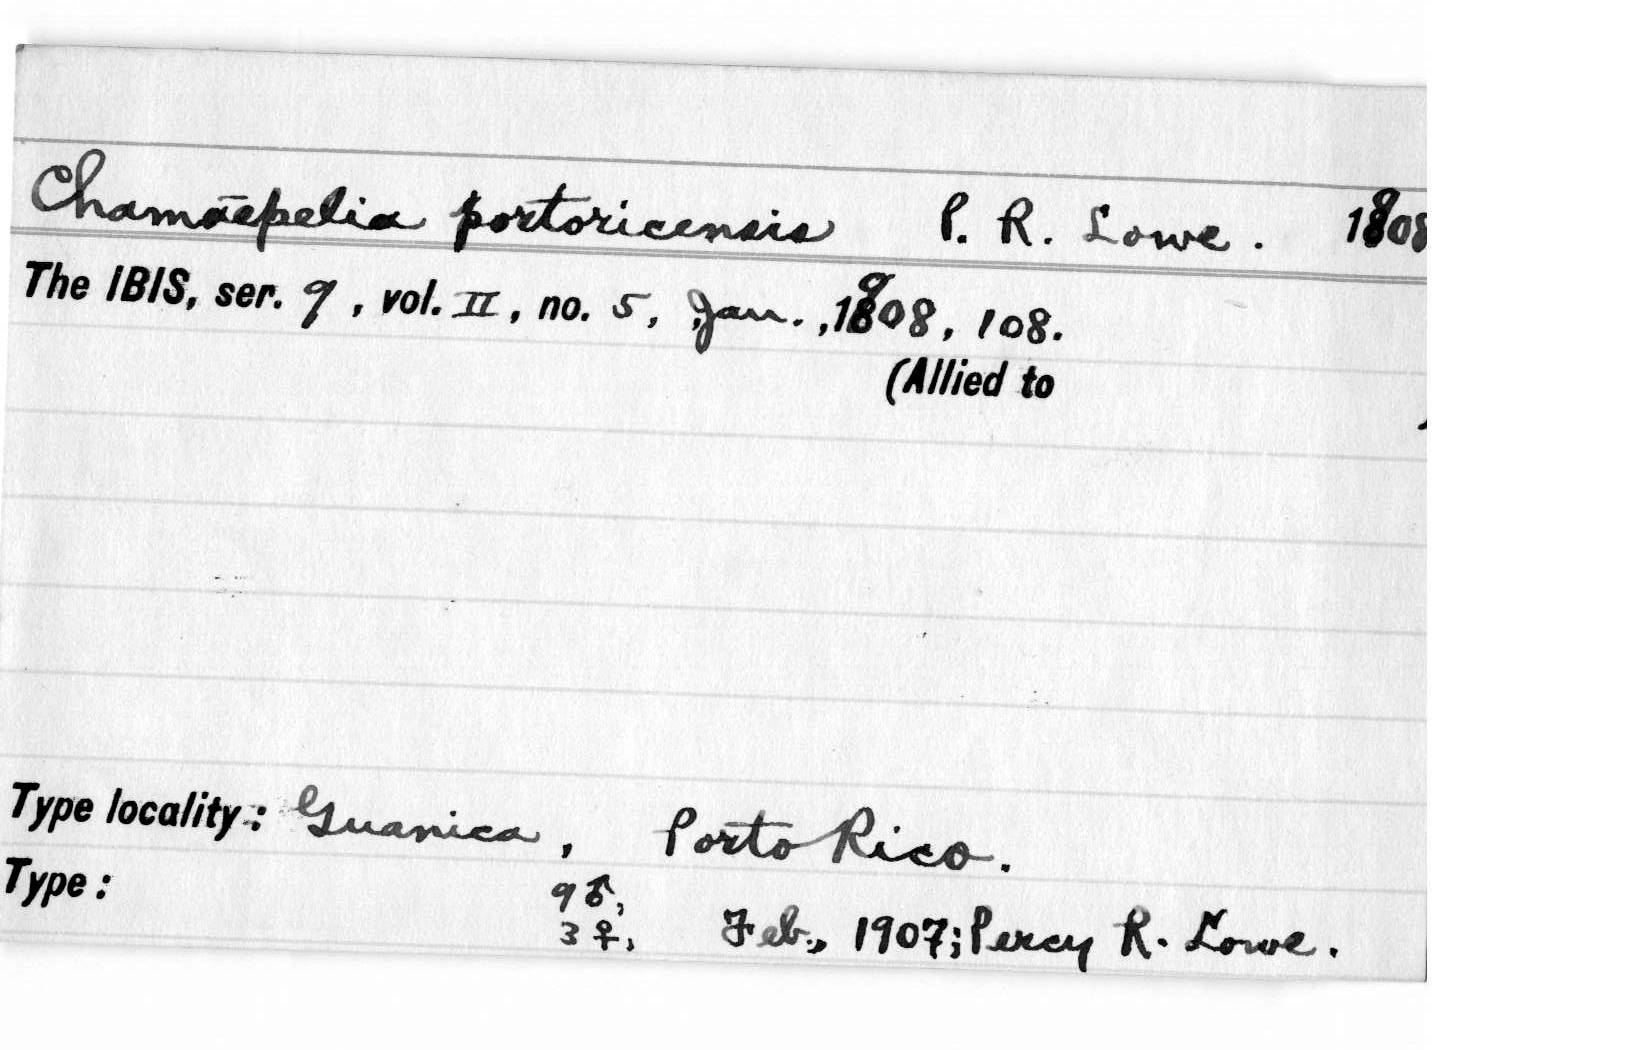 Chamaepelia portoricensis P. R. Lowe. 1908
The IBIS, ser. 9, vol. II, no. 5, Jan., 1908, 108.
(Allied to )
Type locality: Guanica, Porto Rico.
Type: 9♂,
3♀, Feb., 1907; Percy R. Lowe.